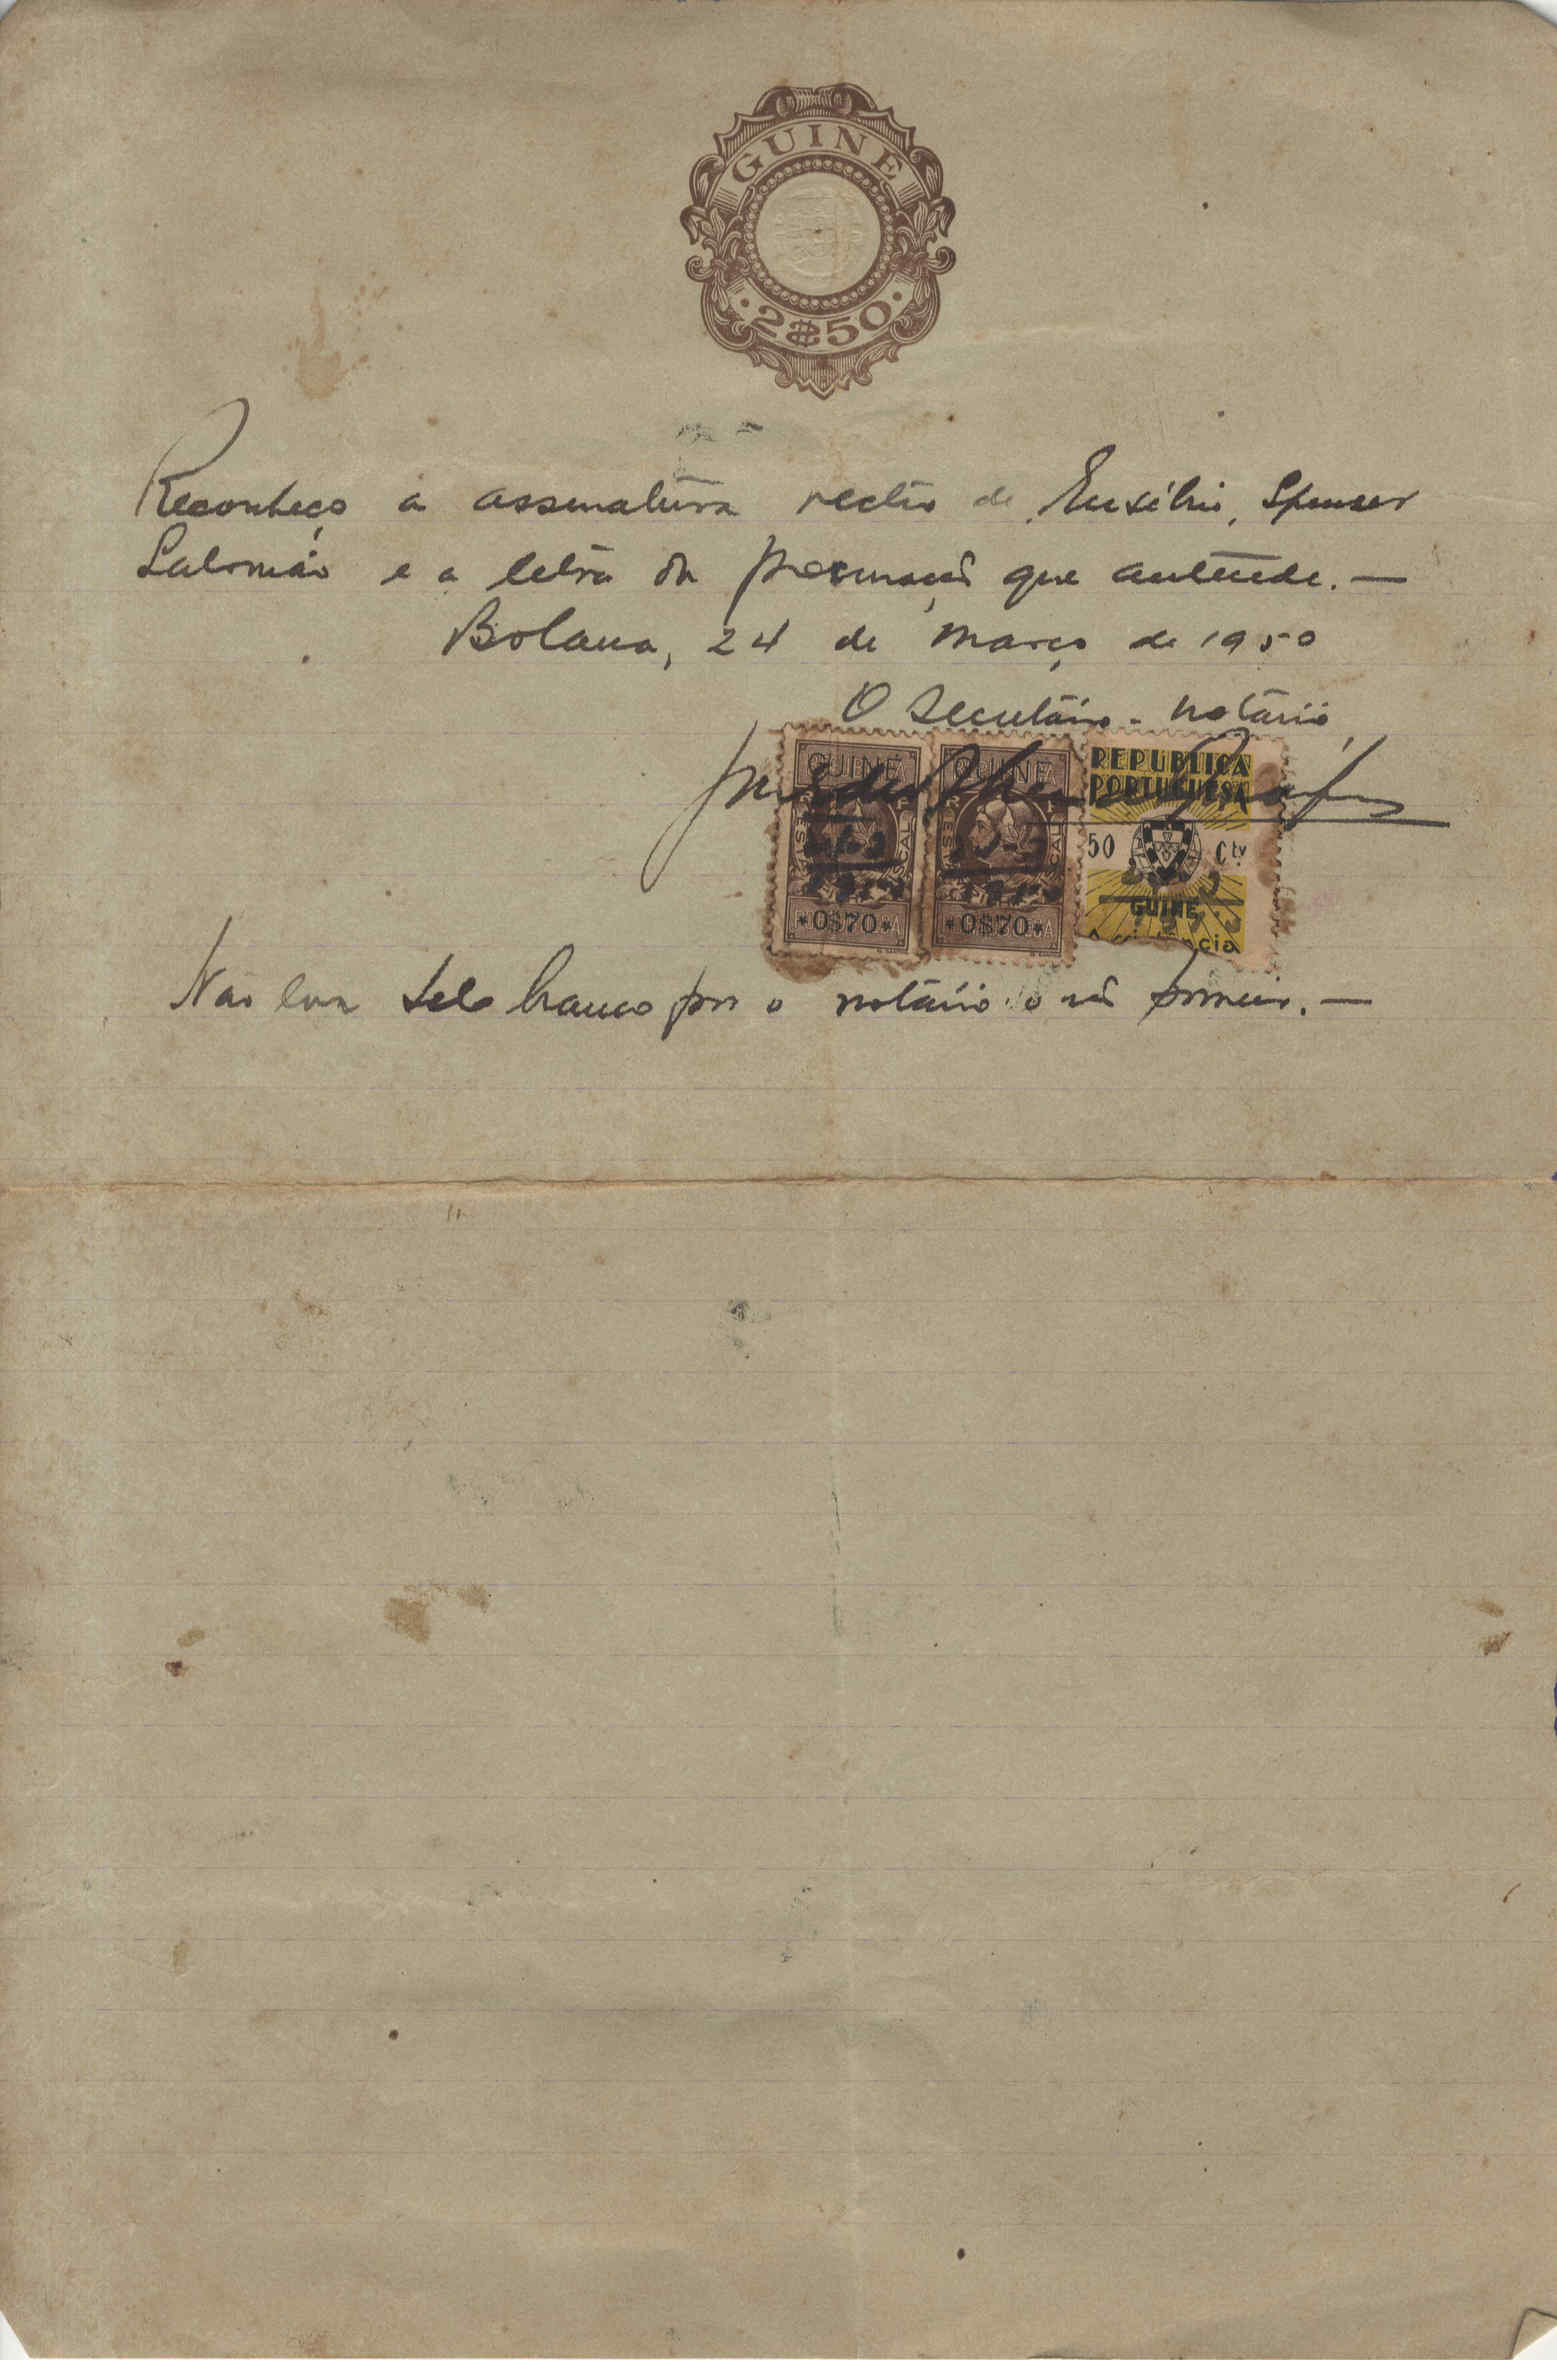 GUINÉ
2$50
Reconheço a assinatura rectro de Eusébio Spencer
Salomão e a letra da procuração que antecede. —
Bolama, 24 de Março de 1950
O Secretário - notário,
GUINÉ GUINÉ REPUBLICA
PORTUGUESA
50 Ctv
GUINÉ
*0$70* *0$70*
Não leva selo branco por o notário o não possuir. —